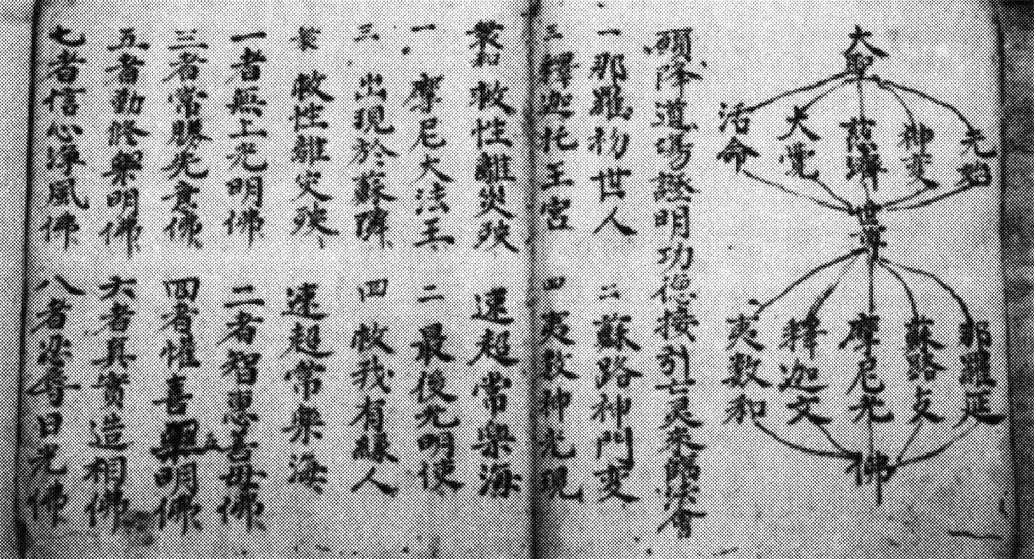 大聖
元始
神变
慈濟
大覺
活命
世尊
那羅延
蘇路支
摩尼光
釋迦文
夷数和
佛
願降道場證明功德接引亡灵來歸法會
一那羅初世人 二蘇路神門变
三釋迦托王宮 四夷数神光現
衆和救性離災殃 速超常樂海
一 摩尼大法王 二 最後光明使
三 出現於蘇隣 四 救我有緣人
衆 救性離灾殃 速超常樂海
一者無上光明佛 二者智惠善母佛
三者常勝先意佛 四者懽喜五明佛
五者勤修樂明佛 六者真实造相佛
七者信心淨風佛 八者忍辱日光佛